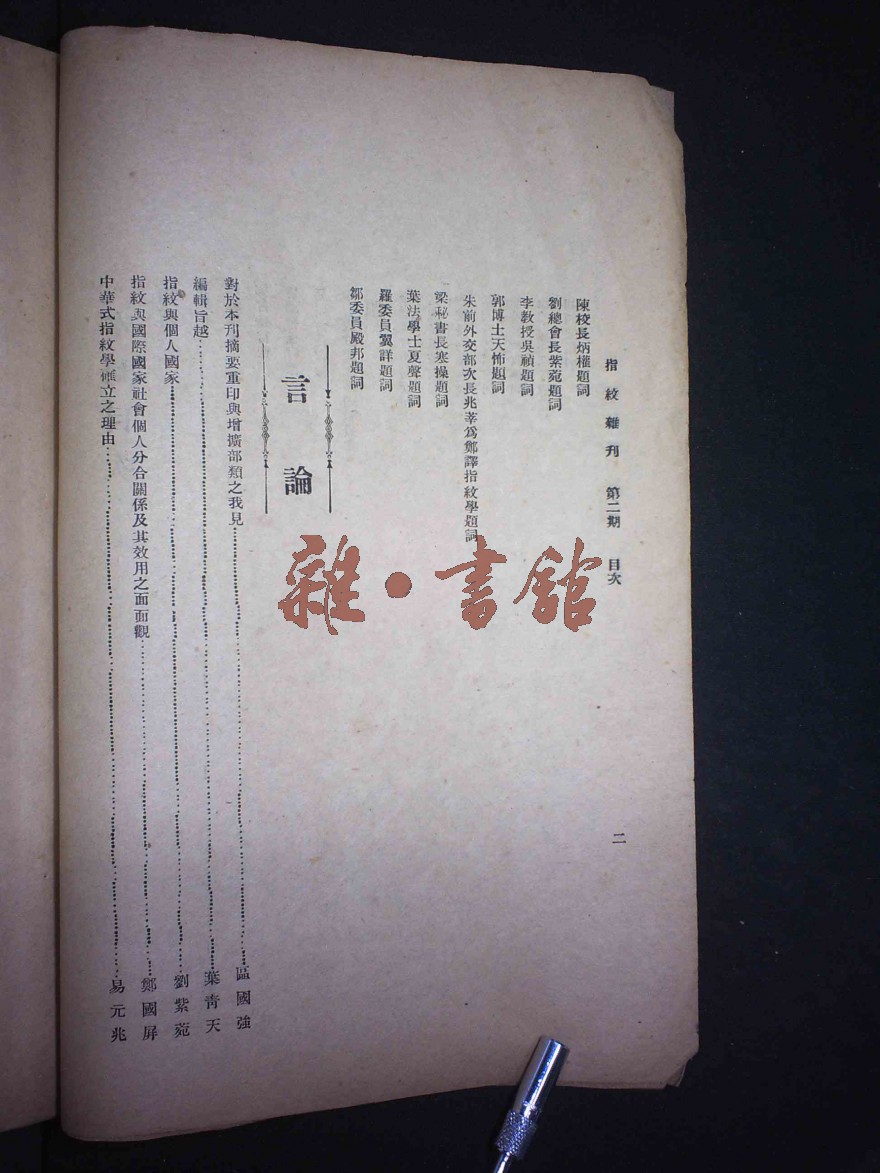 指紋雜刊 第二期 目次
二
陳校長炳權題詞
劉總會長紫菀題詞
李教授吳禎題詞
郭博士天怖題詞
朱前外交部次長兆莘爲鄭譯指紋學題詞
梁秘書長寒操題詞
葉法學士夏聲題詞
羅委員翼詳題詞
鄒委員殿邦題詞
言論
對於本刊摘要重印與增擴部類之我見……區國強
編輯旨趣……葉靑天
指紋與個人國家……劉紫菀
指紋與國際國家社會個人分合關係及其效用之面面觀……鄭國屛
中華式指紋學確立之理由……易元兆
雜·書館